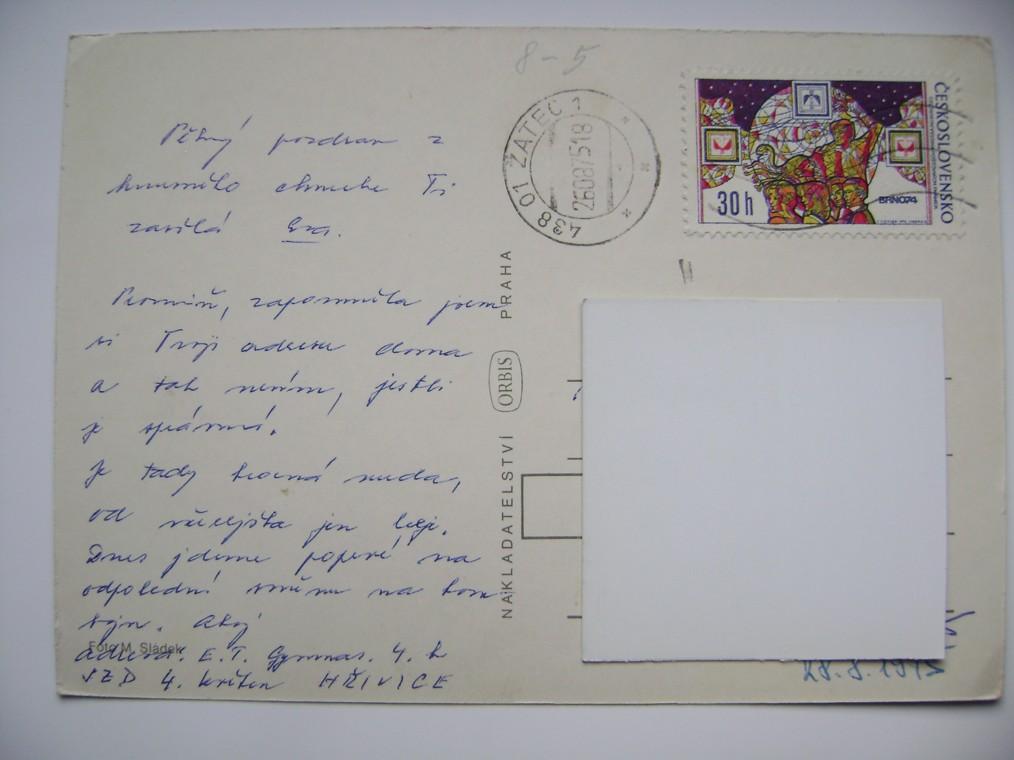 Pěkný pozdrav z
chmele Ti
zasílá Eva.
Promiň, zapomněla jsem
si Tvoji adresu doma
a tak nevím, jestli
je správná.
Je tady hrozná nuda,
od včelejška jen leje.
Dnes jdeme poprvé na
odpolední směnu na kom
bajn. Ahoj
Foto M. Sládek
Adresa: E.T. Gymnas. 4. b
JZD 4. květen HŘIVICE
NAKLADATELSTVÍ ORBIS PRAHA
8-5
438 01 ŽATEC 1
26087518
ČESKOSLOVENSKO
30h
BRNO74
28.8.1975